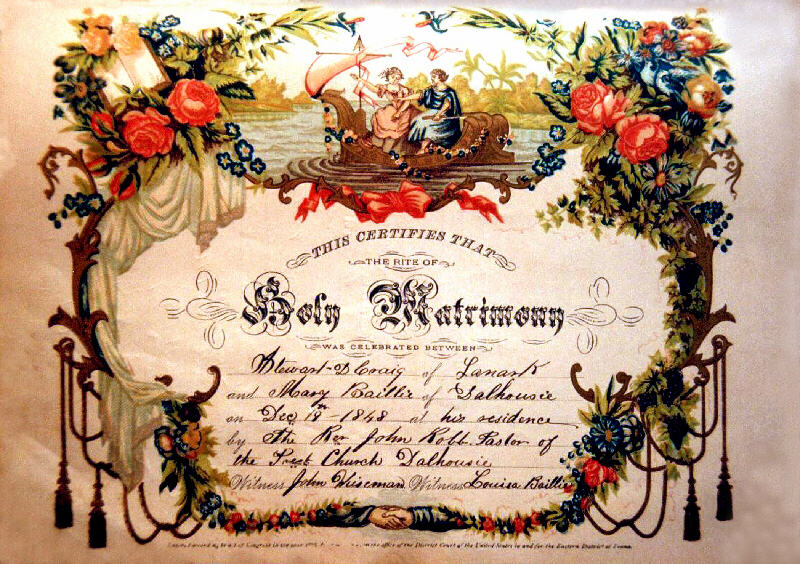 THIS CERTIFIES THAT
THE RITE OF
Holy Matrimony
WAS CELEBRATED BETWEEN
Stewart D Craig of Lanark
and Mary Baillie of Dalhousie
on Dec 1848 at his residence
by The Rev John Robb Pastor of
the Church Dalhousie
Witness John Wiseman Witness Louisa Baillie
Congress in the year in the office of the District Court of the United States in and for the Eastern District of Penna.